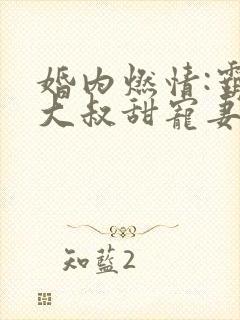 婚内燃情:霸
大叔甜寵妻
知藍2